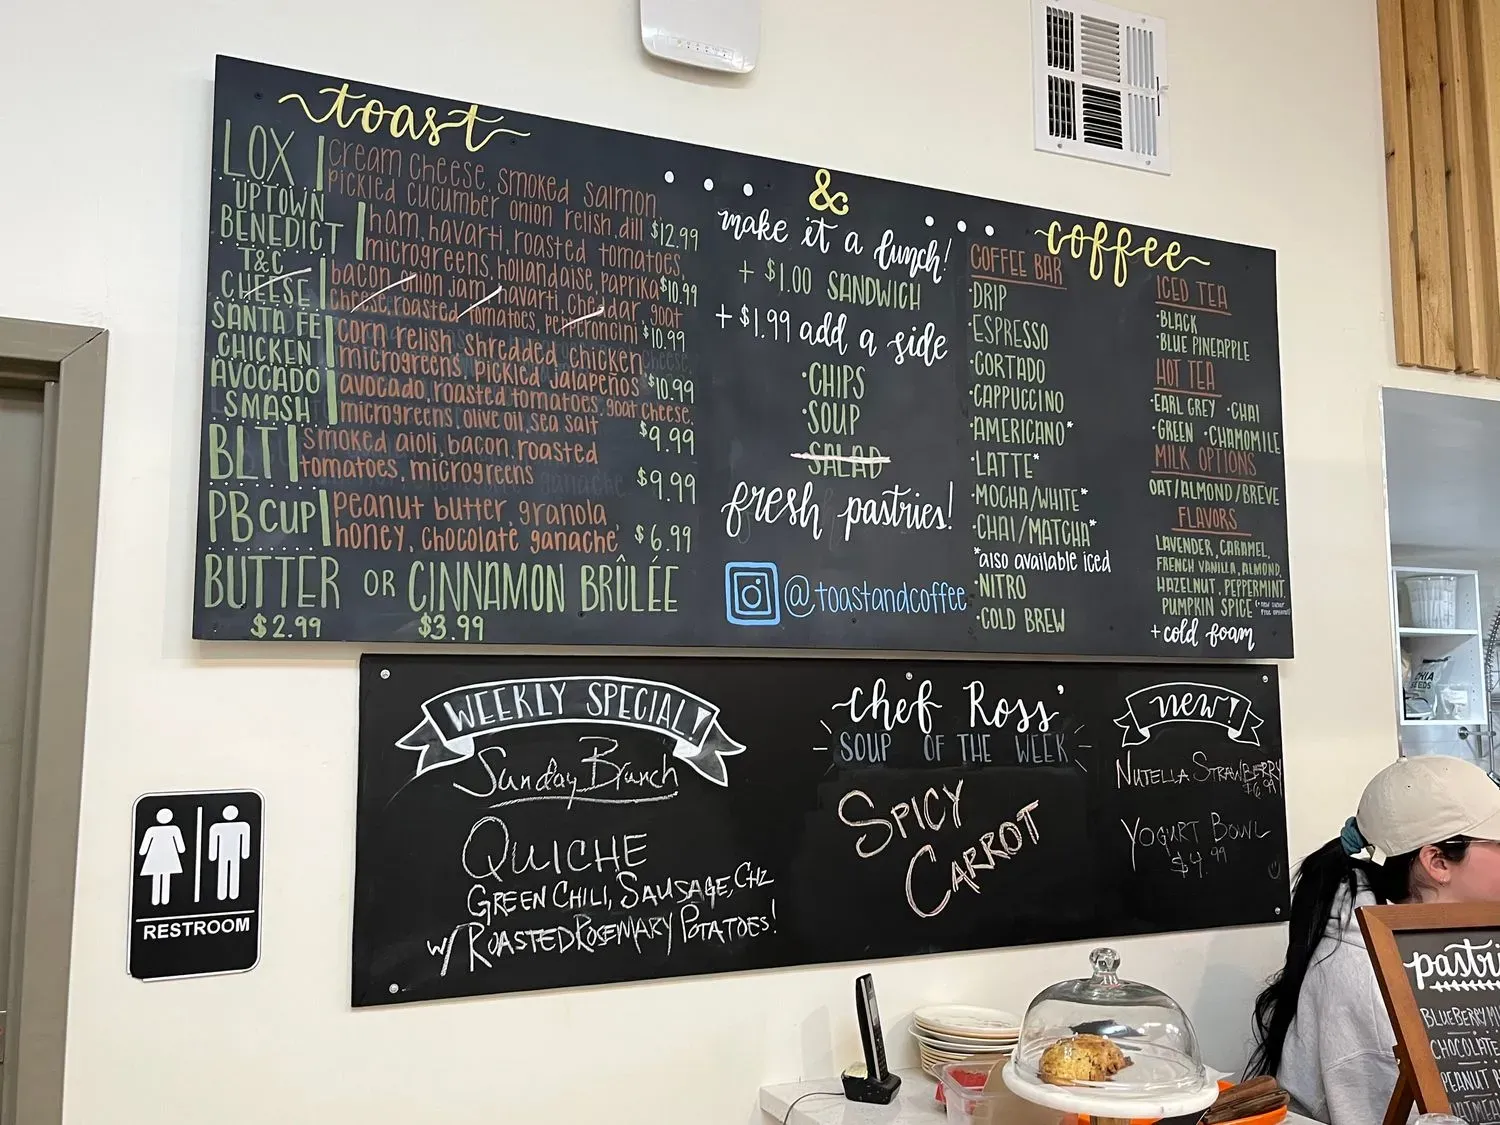 toast
LOX
cream cheese, smoked salmon,
pickled cucumber onion relish, dill $12.99
UPTOWN
BENEDICT
ham, havarti, roasted tomatoes,
microgreens, hollandaise, paprika $10.99
T&C
CHEESE
bacon onion jam, havarti, cheddar, goat
cheese, roasted tomatoes, pepperoncini $10.99
SANTA FE
CHICKEN
corn relish, shredded chicken
microgreens, pickled jalapeños $10.99
AVOCADO
SMASH
avocado, roasted tomatoes, goat cheese,
microgreens, olive oil, sea salt $9.99
BLT
smoked aioli, bacon, roasted
tomatoes, microgreens $9.99
PB CUP
peanut butter, granola,
honey, chocolate ganache $6.99
BUTTER OR CINNAMON BRÛLÉE
$2.99 $3.99
&
make it a lunch!
+ $1.00 SANDWICH
+ $1.99 add a side
·CHIPS
·SOUP
SALAD
fresh pastries!
@toastandcoffee
coffee
COFFEE BAR
·DRIP
·ESPRESSO
·CORTADO
·CAPPUCCINO
·AMERICANO*
·LATTE*
·MOCHA/WHITE*
·CHAI/MATCHA*
*also available iced
·NITRO
·COLD BREW
ICED TEA
·BLACK
·BLUE PINEAPPLE
HOT TEA
·EARL GREY ·CHAI
·GREEN ·CHAMOMILE
MILK OPTIONS
OAT/ALMOND/BREVE
FLAVORS
LAVENDER, CARAMEL,
FRENCH VANILLA, ALMOND,
HAZELNUT, PEPPERMINT,
PUMPKIN SPICE
+cold foam
WEEKLY SPECIAL!
Sunday Brunch
QUICHE
GREEN CHILI, SAUSAGE, CHZ
W/ ROASTED ROSEMARY POTATOES!
chef Ross'
SOUP OF THE WEEK
SPICY
CARROT
new!
NUTELLA STRAWBERRY
YOGURT BOWL
$4.99
RESTROOM
CHIA
SEEDS
BLUEBERRY
CHOCOLATE
PEANUT